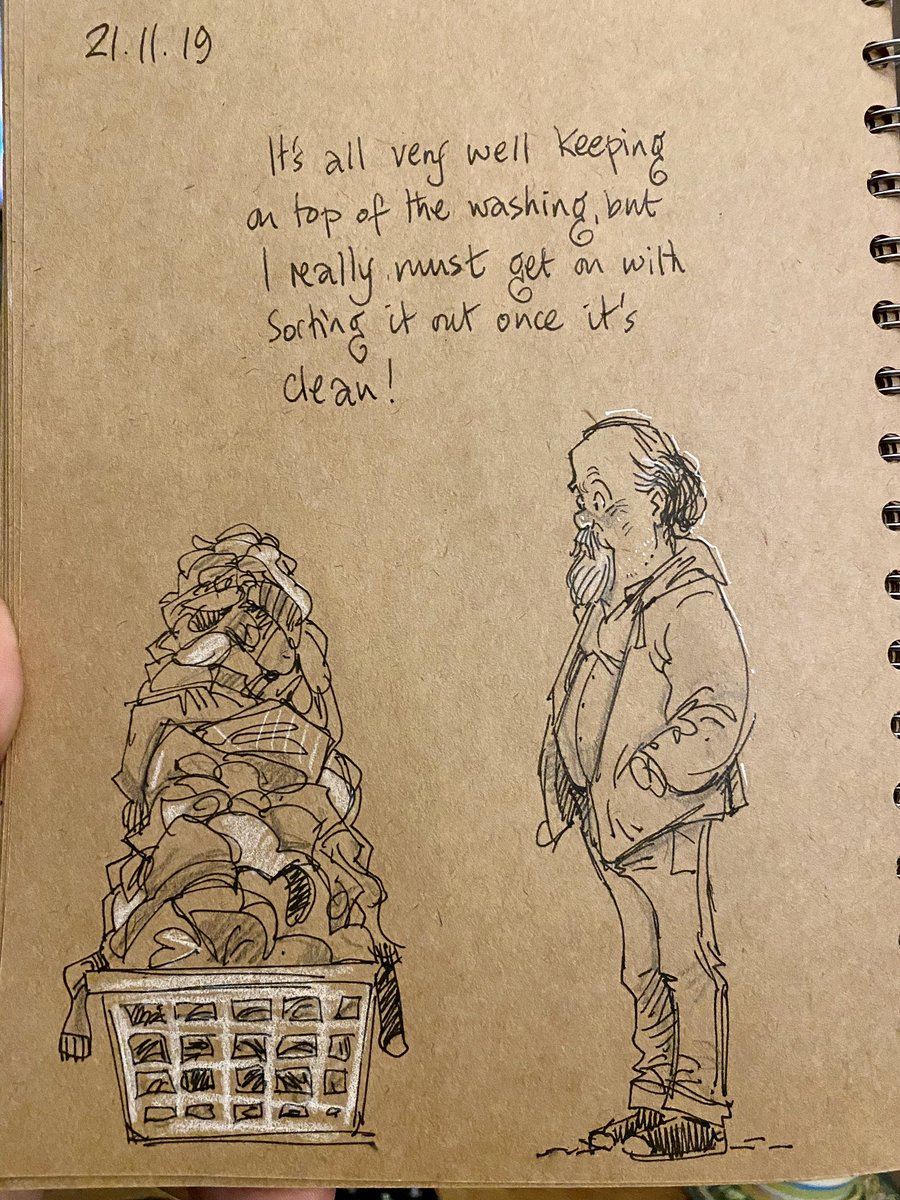 21.11.19
It's all very well keeping
on top of the washing, but
I really must get on with
sorting it out once it's
clean!